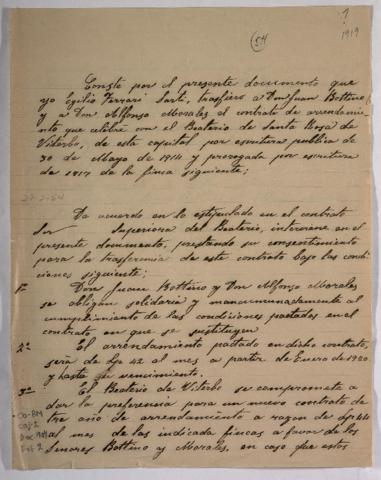 ?
54
1919
Conste por el presente documento que
yo Egilio Ferrari Sarti, trasfiero a Don Juan Bottino
y a Don Alfonso Morales el contrato de arrendamie-
nto que celebre con el Beaterio de Santa Rosa de
Viterbo, de esta capital por escritura publica de
30 de Mayo de 1914 y prorogada por escritura
de 1917 de la finca siguiente;
27-2-54
De acuerdo en lo estipulado en el contrato
Sor Superiora del Beaterio, interviene en el
presente documento, prestando su consentimiento
para la trasferencia de este contrato bajo las condi
ciones siguiente;
1ª Don Juan Bottino y Don Alfonso Morales
se obligan solidaria y mancomunadamente al
cumplimiento de las condiciones pactadas en el
contrato en que se sustituyen
2ª El arrendamiento pactado en dicho contrato,
será de Lp 42 al mes a partir de Enero de 1920
y hasta su vencimiento.
3ª El Beaterio de Viterbo se compromete a
dar la preferencia para un nuevo contrato de
tre año de arrendamiento a razon de Lp 44
al mes de las indicada fincas a favor de los
Senores Bottino y Morales, en caso que estos
CO-BM
Caj-2
Doc